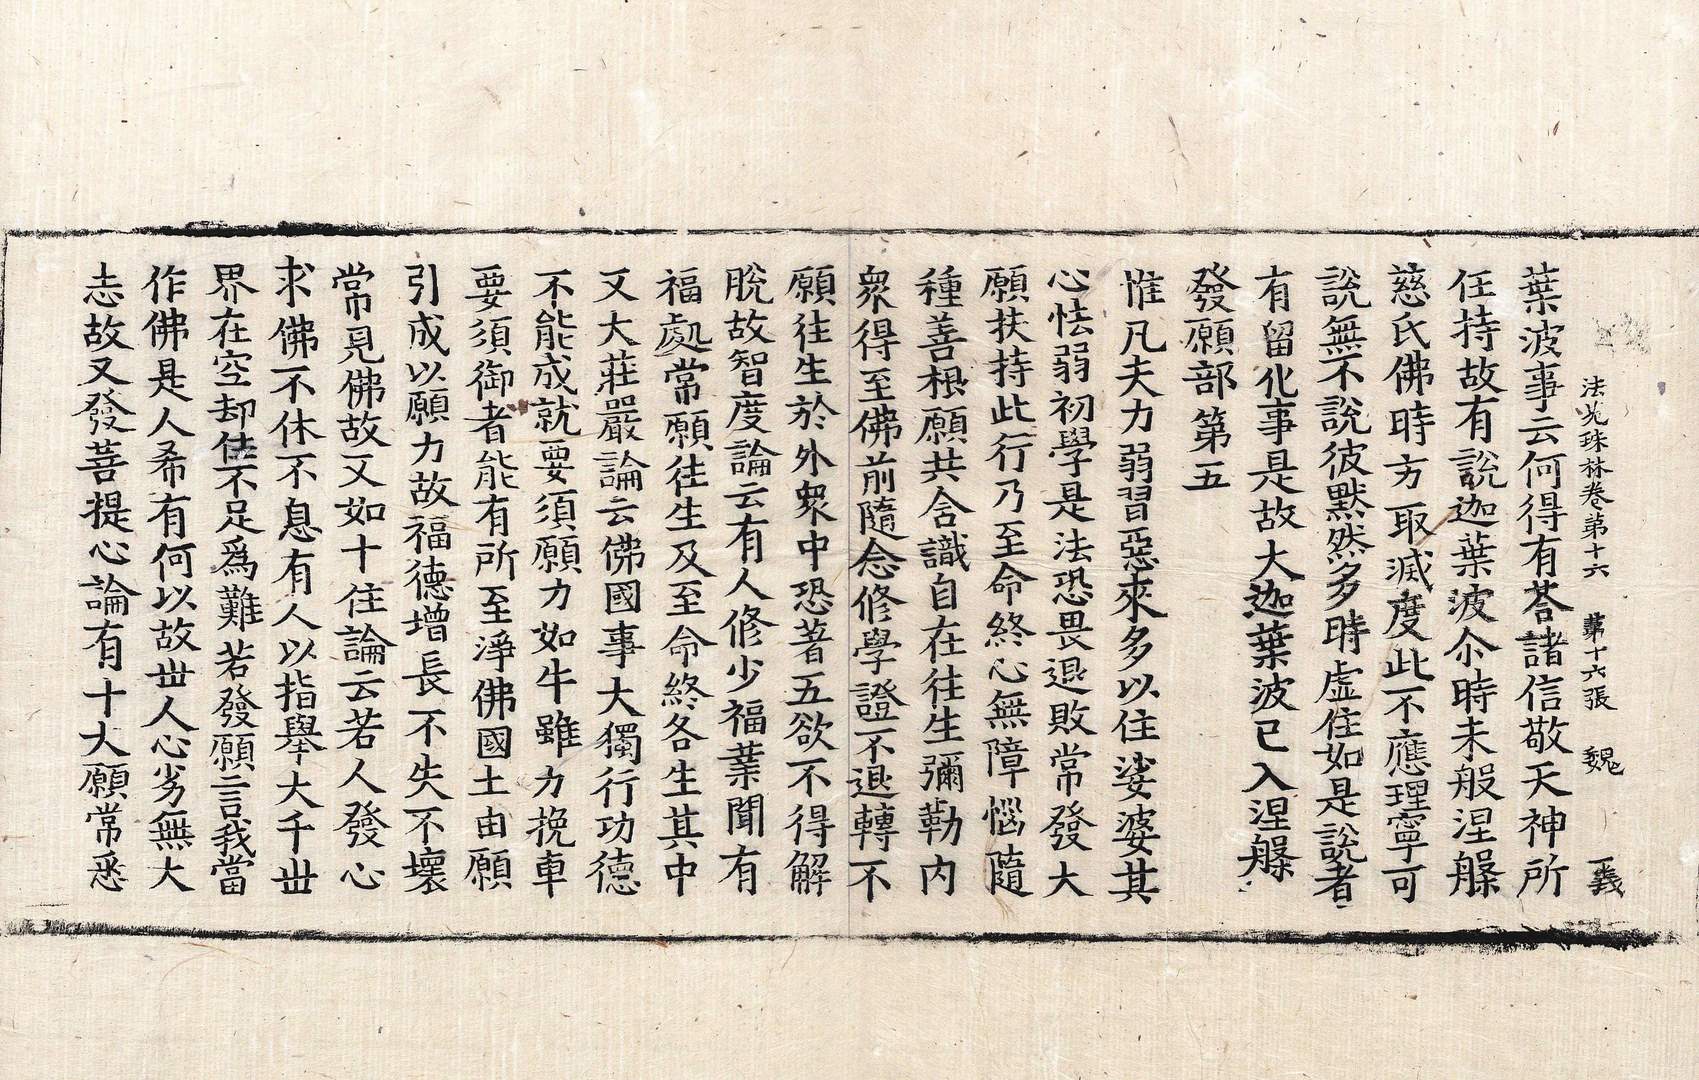 法苑珠林卷第十六 第十六張 魏 義
葉波事云何得有荅諸信敬天神所
任持故有說迦葉波尒時未般涅槃
慈氏佛時方取滅度此不應理寧可
說無不說彼默然多時虛住如是說者
有留化事是故大迦葉波已入涅槃
發願部第五
惟凡夫力弱習惡來多以住娑婆其
心怯弱初學是法恐畏退敗常發大
願扶持此行乃至命終心無障惱隨
種善根願共含識自在往生彌勒内
衆得至佛前隨念修學證不退轉不
願往生於外衆中恐著五欲不得解
脫故智度論云有人修少福業聞有
福處常願往生及至命終各生其中
又大莊嚴論云佛國事大獨行功德
不能成就要須願力如牛雖力挽車
要須御者能有所至淨佛國土由願
引成以願力故福德增長不失不壞
常見佛故又如十住論云若人發心
求佛不休不息有人以指舉大千世
界在空却住不足爲難若發願言我當
作佛是人希有何以故世人心劣無大
志故又發菩提心論有十大願常悉